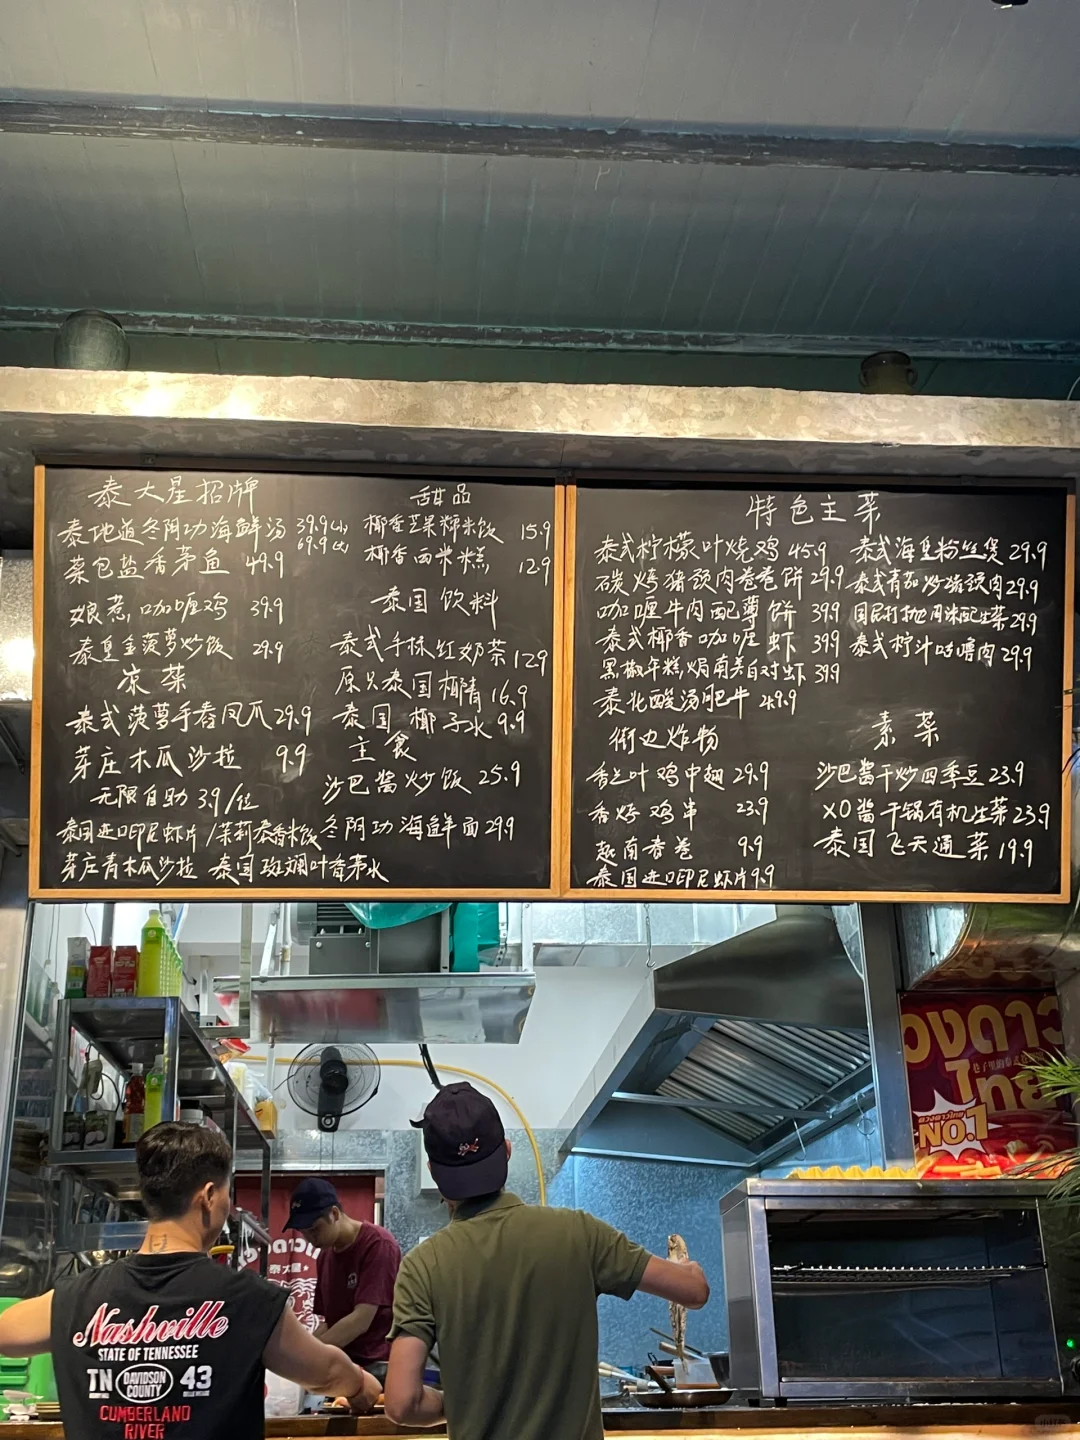 泰大星招牌
泰地道冬阴功海鲜汤 39.9(小)
69.9(大)
菜包盐香茅鱼 49.9
娘惹咖喱鸡 39.9
泰皇金菠萝炒饭 29.9
凉菜
泰式菠萝手香凤爪 29.9
芽庄木瓜沙拉 9.9
无限自助 3.9/位
泰国进口印尼虾片/茉莉泰香米饭
芽庄青木瓜沙拉 泰国斑斓叶香茅水
甜品
椰香芒果糯米饭 15.9
椰香西米糕 12.9
泰国饮料
泰式手标红奶茶 12.9
原只泰国椰青 16.9
泰国椰子水 9.9
主食
沙巴酱炒饭 25.9
冬阴功海鲜面 29.9
特色主菜
泰式柠檬叶烧鸡 45.9
碳烤猪颈肉卷卷饼 29.9
咖喱牛肉配薄饼 39.9
泰式椰香咖喱虾 39.9
黑椒年糕焗南美白对虾 39.9
泰北酸汤肥牛 49.9
泰式海皇粉丝煲 29.9
泰式青茄炒猪颈肉 29.9
国民打抛肉沫配生菜 29.9
泰式柠汁咕噜肉 29.9
街边炸粉
香兰叶鸡中翅 29.9
香烤鸡串 23.9
越南春卷 9.9
泰国进口印尼虾片 9.9
素菜
沙巴酱干炒四季豆 23.9
XO酱干锅有机生菜 23.9
泰国飞天通菜 19.9
องดาว
巷子里的泰
ไทย
ดวงดาวไทย
NO.1
องดาวท
泰大星
Nashville
STATE OF TENNESSEE
TN DAVIDSON COUNTY 43
CUMBERLAND
RIVER